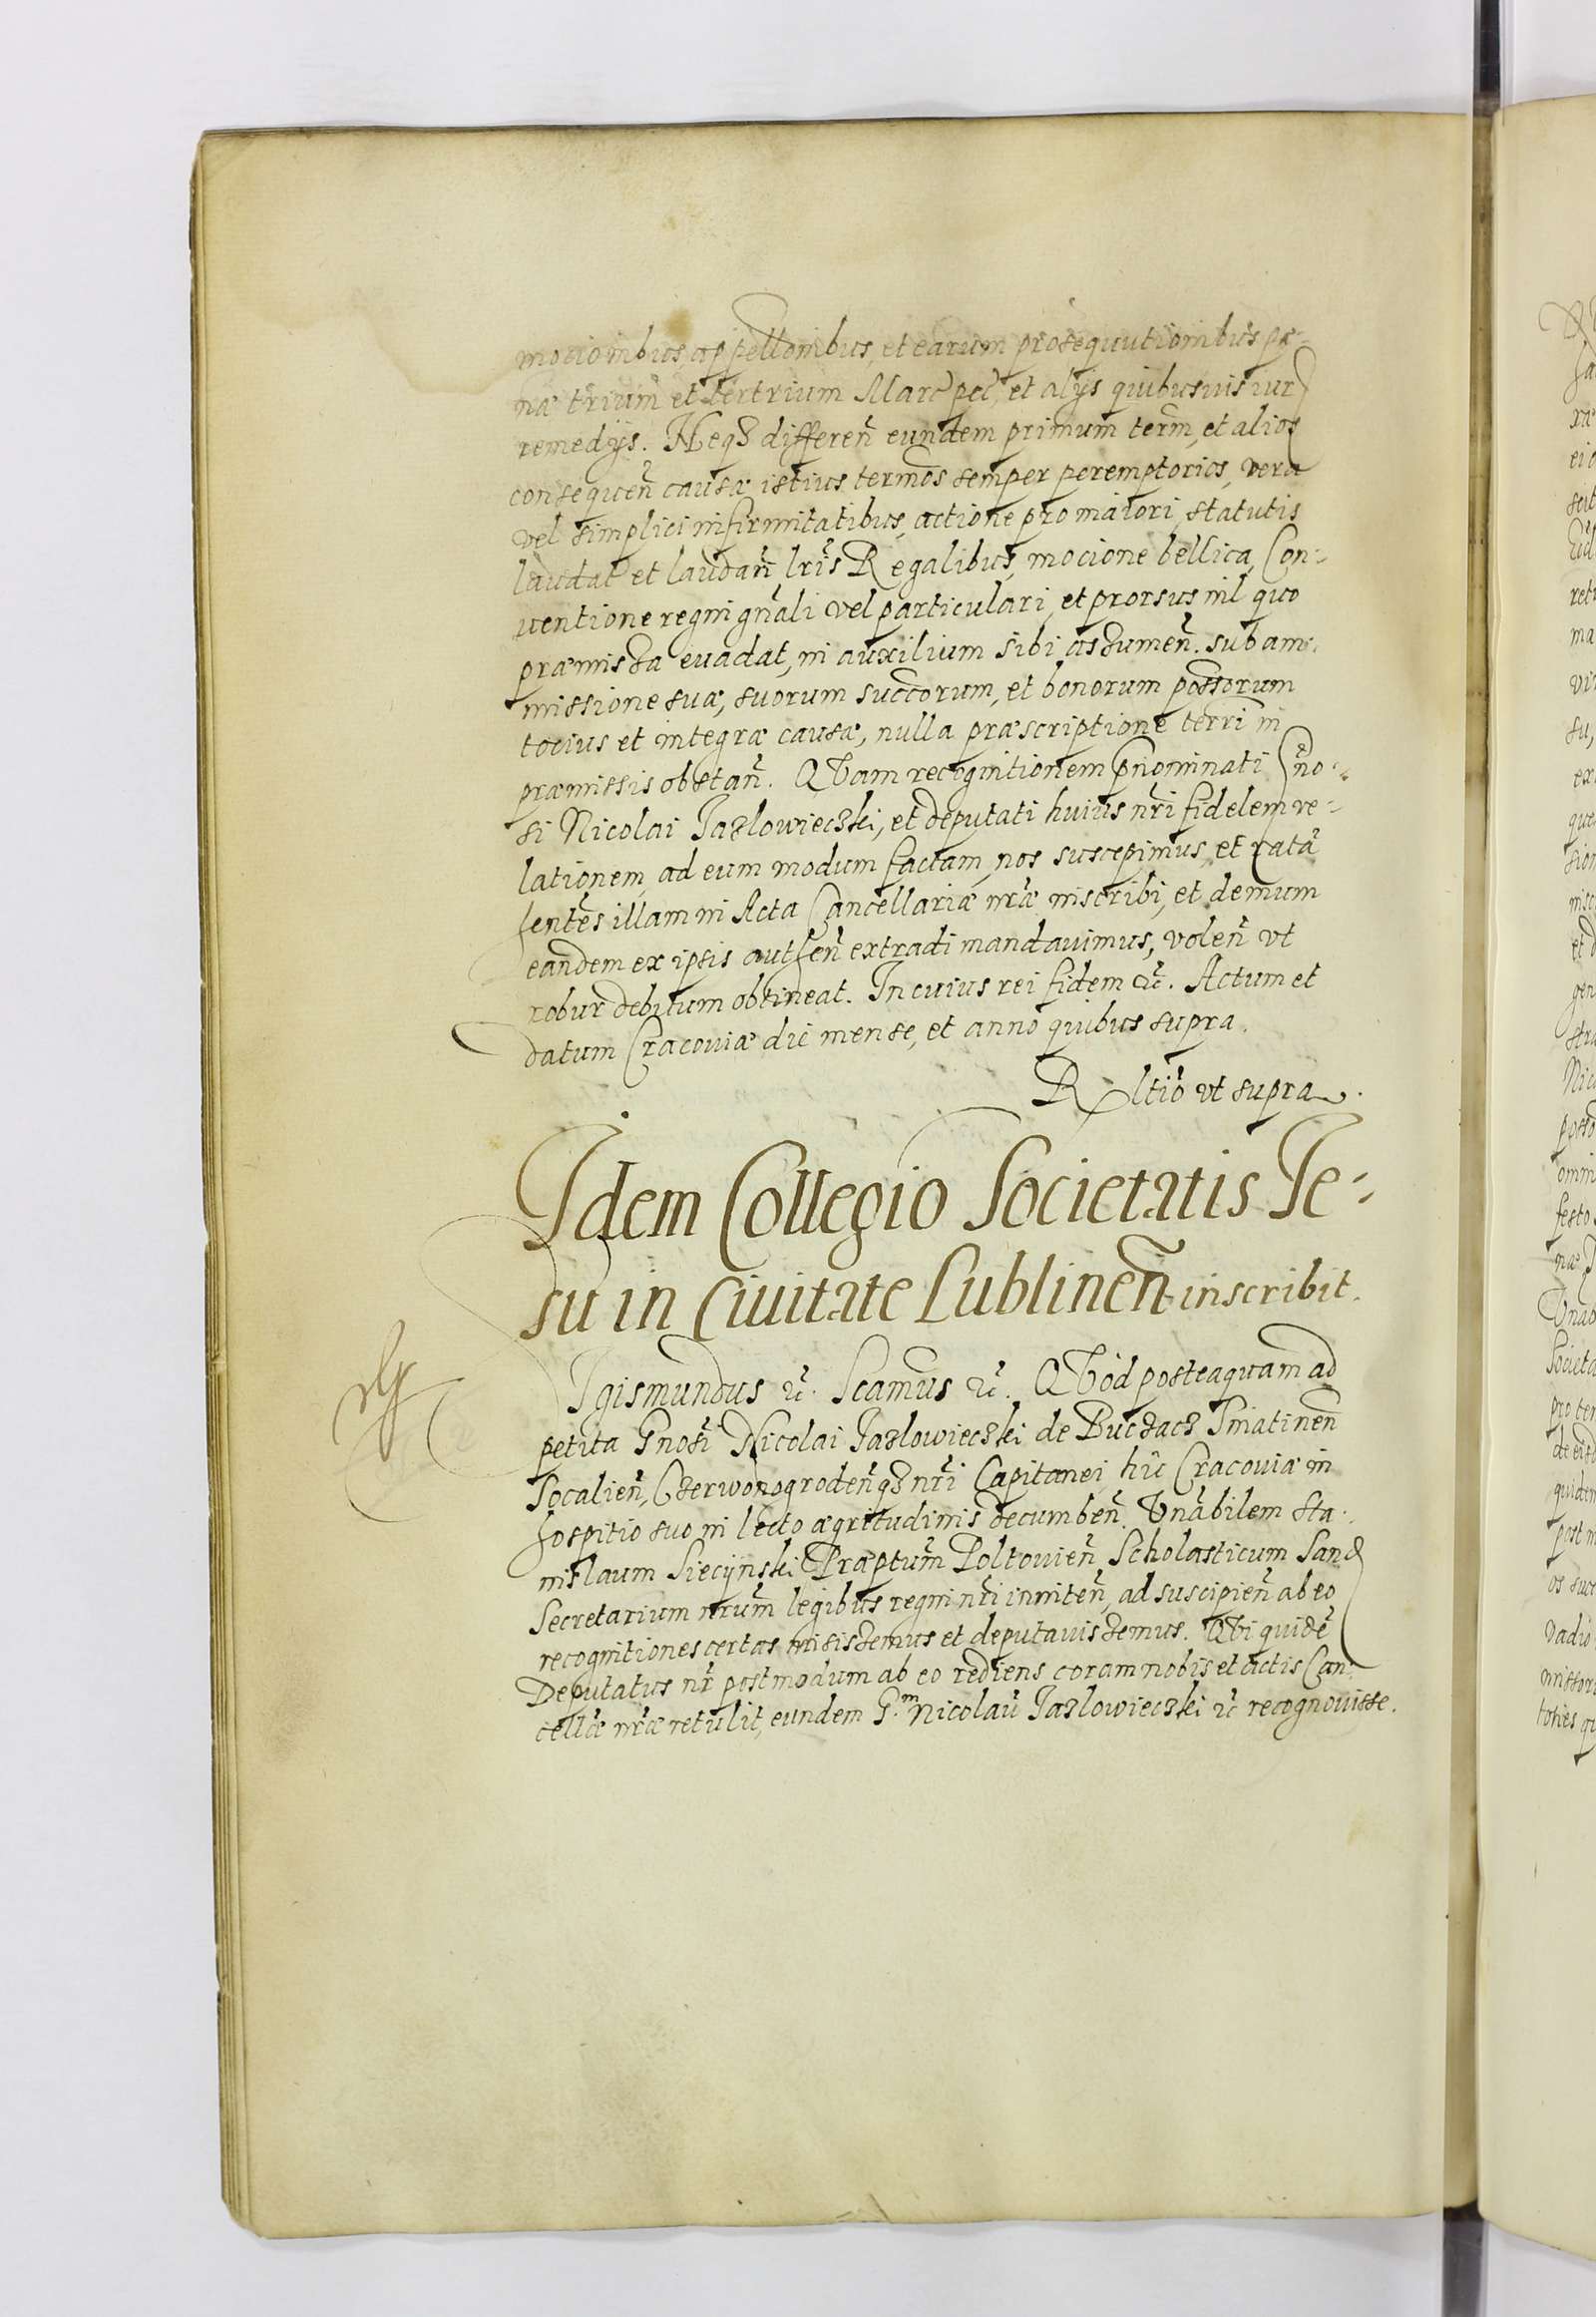 mocionibus, appellonibus, et earum prosequutionibus pæ-
næ trium et tertrium Marc̃ pec̃, et alijs quibusuis iur
remedijs. Neqȝ differen̄ eundem primum term̄, et alios
consequen̄ causæ istius termōs semper peremptorios, vera
vel simplici infirmitatibus, actione pro maiori, statutis
laudat̃ et laudan̄, lrīs Regalibus, mocione bellica, Con-
uentione regni gn̄ali vel particulari, et prorsus nil quo
præmissa euadat, in auxilium sibi assumen̄. sub am-
missione suæ, suorum succorum, et bonorum possorum
tocius et integræ causæ, nulla præscriptione terrī in
præmissis obstan̄. QVam recognitionem p̄nominati Gn̄o-
si Nicolai Jazlowieczki, et deputati huius nr̄i fidelem re-
lationem, ad eum modum factam, nos suscepimus, et ratā
hentēs illam in Acta Cancellariæ nr̄æ inscribi, et demum
eandem ex ipsis authen̄ extradi mandauimus, volen̄ vt
robur debitum obtineat. In cuius rei fidem &c̃. Actum et
datum Cracouiæ die mense, et anno quibus supra.
R ltiō vt supra.
Idem Collegio Societatis Je-
su in Ciuitate Lublinen̄ inscribit.
Igismundus &c̃. Scamūs &c̃. QVod posteaquam ad
petita Gnosī Nicolai Jazlowieczki de Buczacz Sniatinen̄
Socalien̄, Czerwonogroden̄qȝ nr̄i Capitanei, hīc Cracouiæ in
hospitio suo in lecto ægritudinis decumben̄. Vnābilem Sta-
nislaum Siecijnski Præptūm Poltouien̄ Scholasticum Sand
Secretarium nr̄um legibus regni nr̄i inniten̄, ad suscipien̄ ab eo
recognitiones certas misissemus et deputauissemus. QVi quidē
Deputatus nr̄ postmodum ab eo rediens coram nobis et actis Can-
cellæ nr̄æ retulit, eundem G.m Nicolaū Jazlowieczki &c̃ recognouisse.